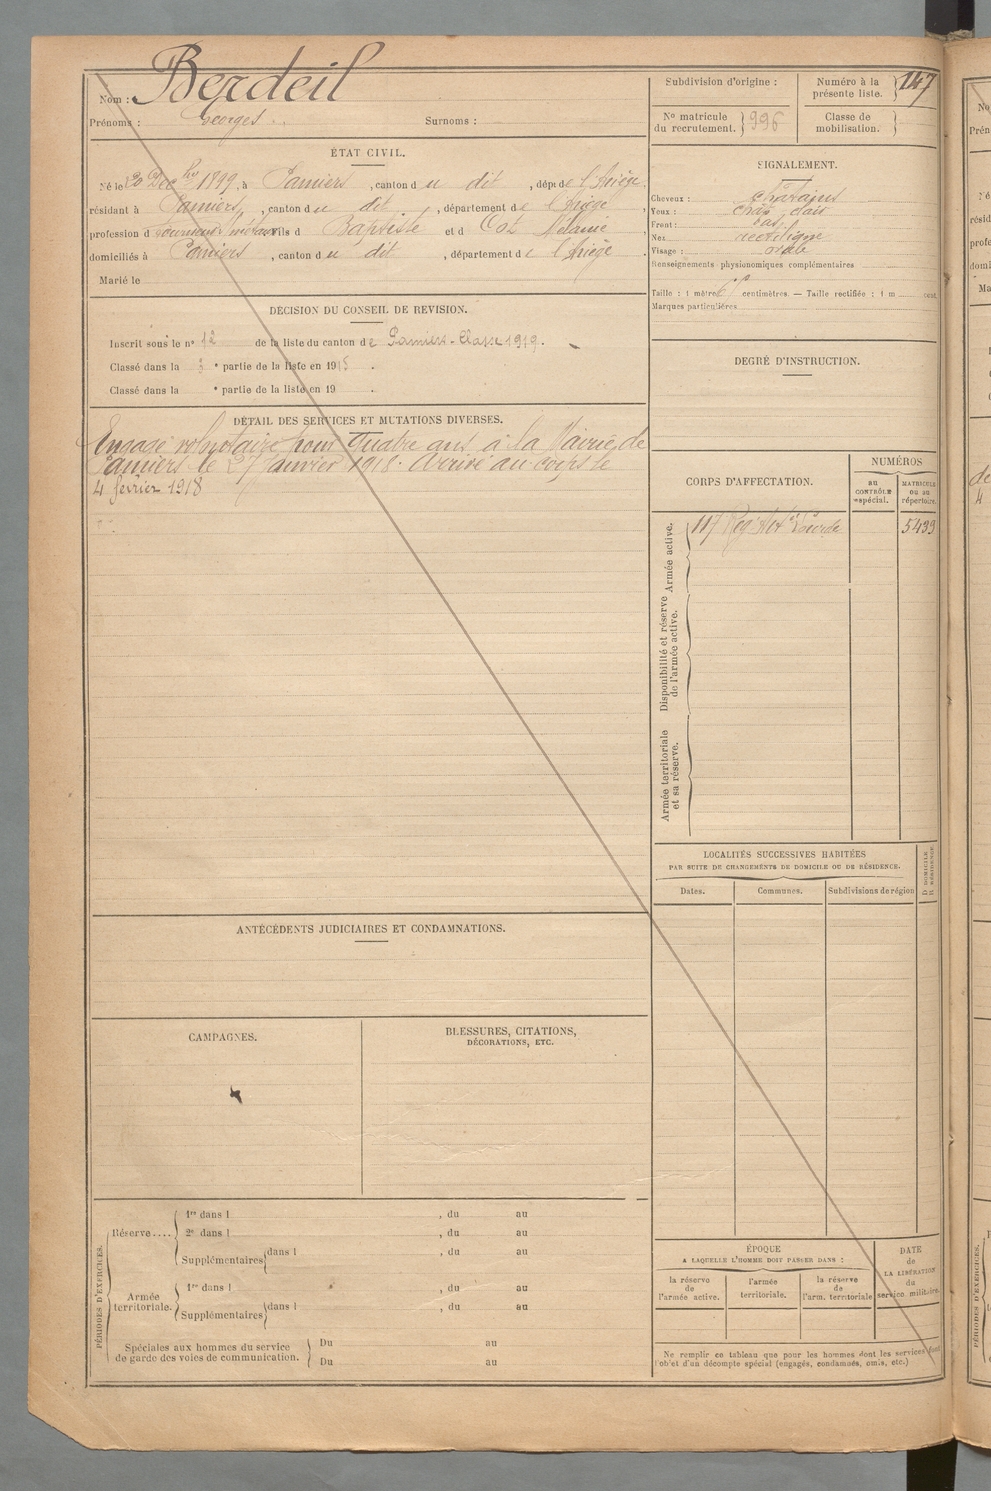 Nom : Berdeil
Prénoms : Georges Surnoms :
ÉTAT CIVIL.
Né le 20 Dec bre 1899, à Pamiers, canton du dit, dépt de l'Ariège,
résidant à Pamiers, canton du dit, département de l'Ariège,
profession de tourneur s/ métaux fils de Baptiste et de Cot Mélanie,
domiciliés à Pamiers, canton du dit, département de l'Ariège.
Marié le
DÉCISION DU CONSEIL DE REVISION.
Inscrit sous le n° 12 de la liste du canton de Pamiers - Classe 1919.
Classé dans la partie de la liste en 1918.
Classé dans la e partie de la liste en 19 .
DÉTAIL DES SERVICES ET MUTATIONS DIVERSES.
Engagé volontaire pour quatre ans à la Mairie de
Pamiers le 27 Janvier 1918. Arrivé au corps le
4 février 1918
ANTÉCÉDENTS JUDICIAIRES ET CONDAMNATIONS.
CAMPAGNES.
BLESSURES, CITATIONS,
DÉCORATIONS, ETC.
PÉRIODES D'EXERCICES.
Réserve....
1re dans l , du au
2e dans l , du au
Supplémentaires dans l , du au
Armée
territoriale.
1re dans l , du au
Supplémentaires dans l , du au
Spéciales aux hommes du service
de garde des voies de communication.
Du au
Du au
Subdivision d'origine :
Numéro à la
présente liste. 147
No matricule
du recrutement. 996
Classe de
mobilisation.
SIGNALEMENT.
Cheveux : châtains
Yeux : chât clair
Front : bas
Nez rectiligne
Visage : ovale
Renseignements physionomiques complémentaires
Taille : 1 mètre centimètres. — Taille rectifiée : 1 m cent.
Marques particulières
DEGRÉ D'INSTRUCTION.
CORPS D'AFFECTATION.
NUMÉROS
au
CONTRÔLE
spécial.
MATRICULE
ou au
répertoire.
Armée active.
117 Reg. Art ie Lourde 5439
Disponibilité et réserve
de l'armée active.
Armée territoriale
et sa réserve.
LOCALITÉS SUCCESSIVES HABITÉES
PAR SUITE DE CHANGEMENTS DE DOMICILE OU DE RÉSIDENCE.
Dates. Communes. Subdivisions de région
D DOMICILE
R RÉSIDENCE
ÉPOQUE
A LAQUELLE L'HOMME DOIT PASSER DANS :
la réserve
de
l'armée active.
l'armée
territoriale.
la réserve
de
l'arm. territoriale
DATE
de
LA LIBÉRATION
du
service militaire.
Ne remplir ce tableau que pour les hommes dont les services font
l'objet d'un décompte spécial (engagés, condamnés, omis, etc.)